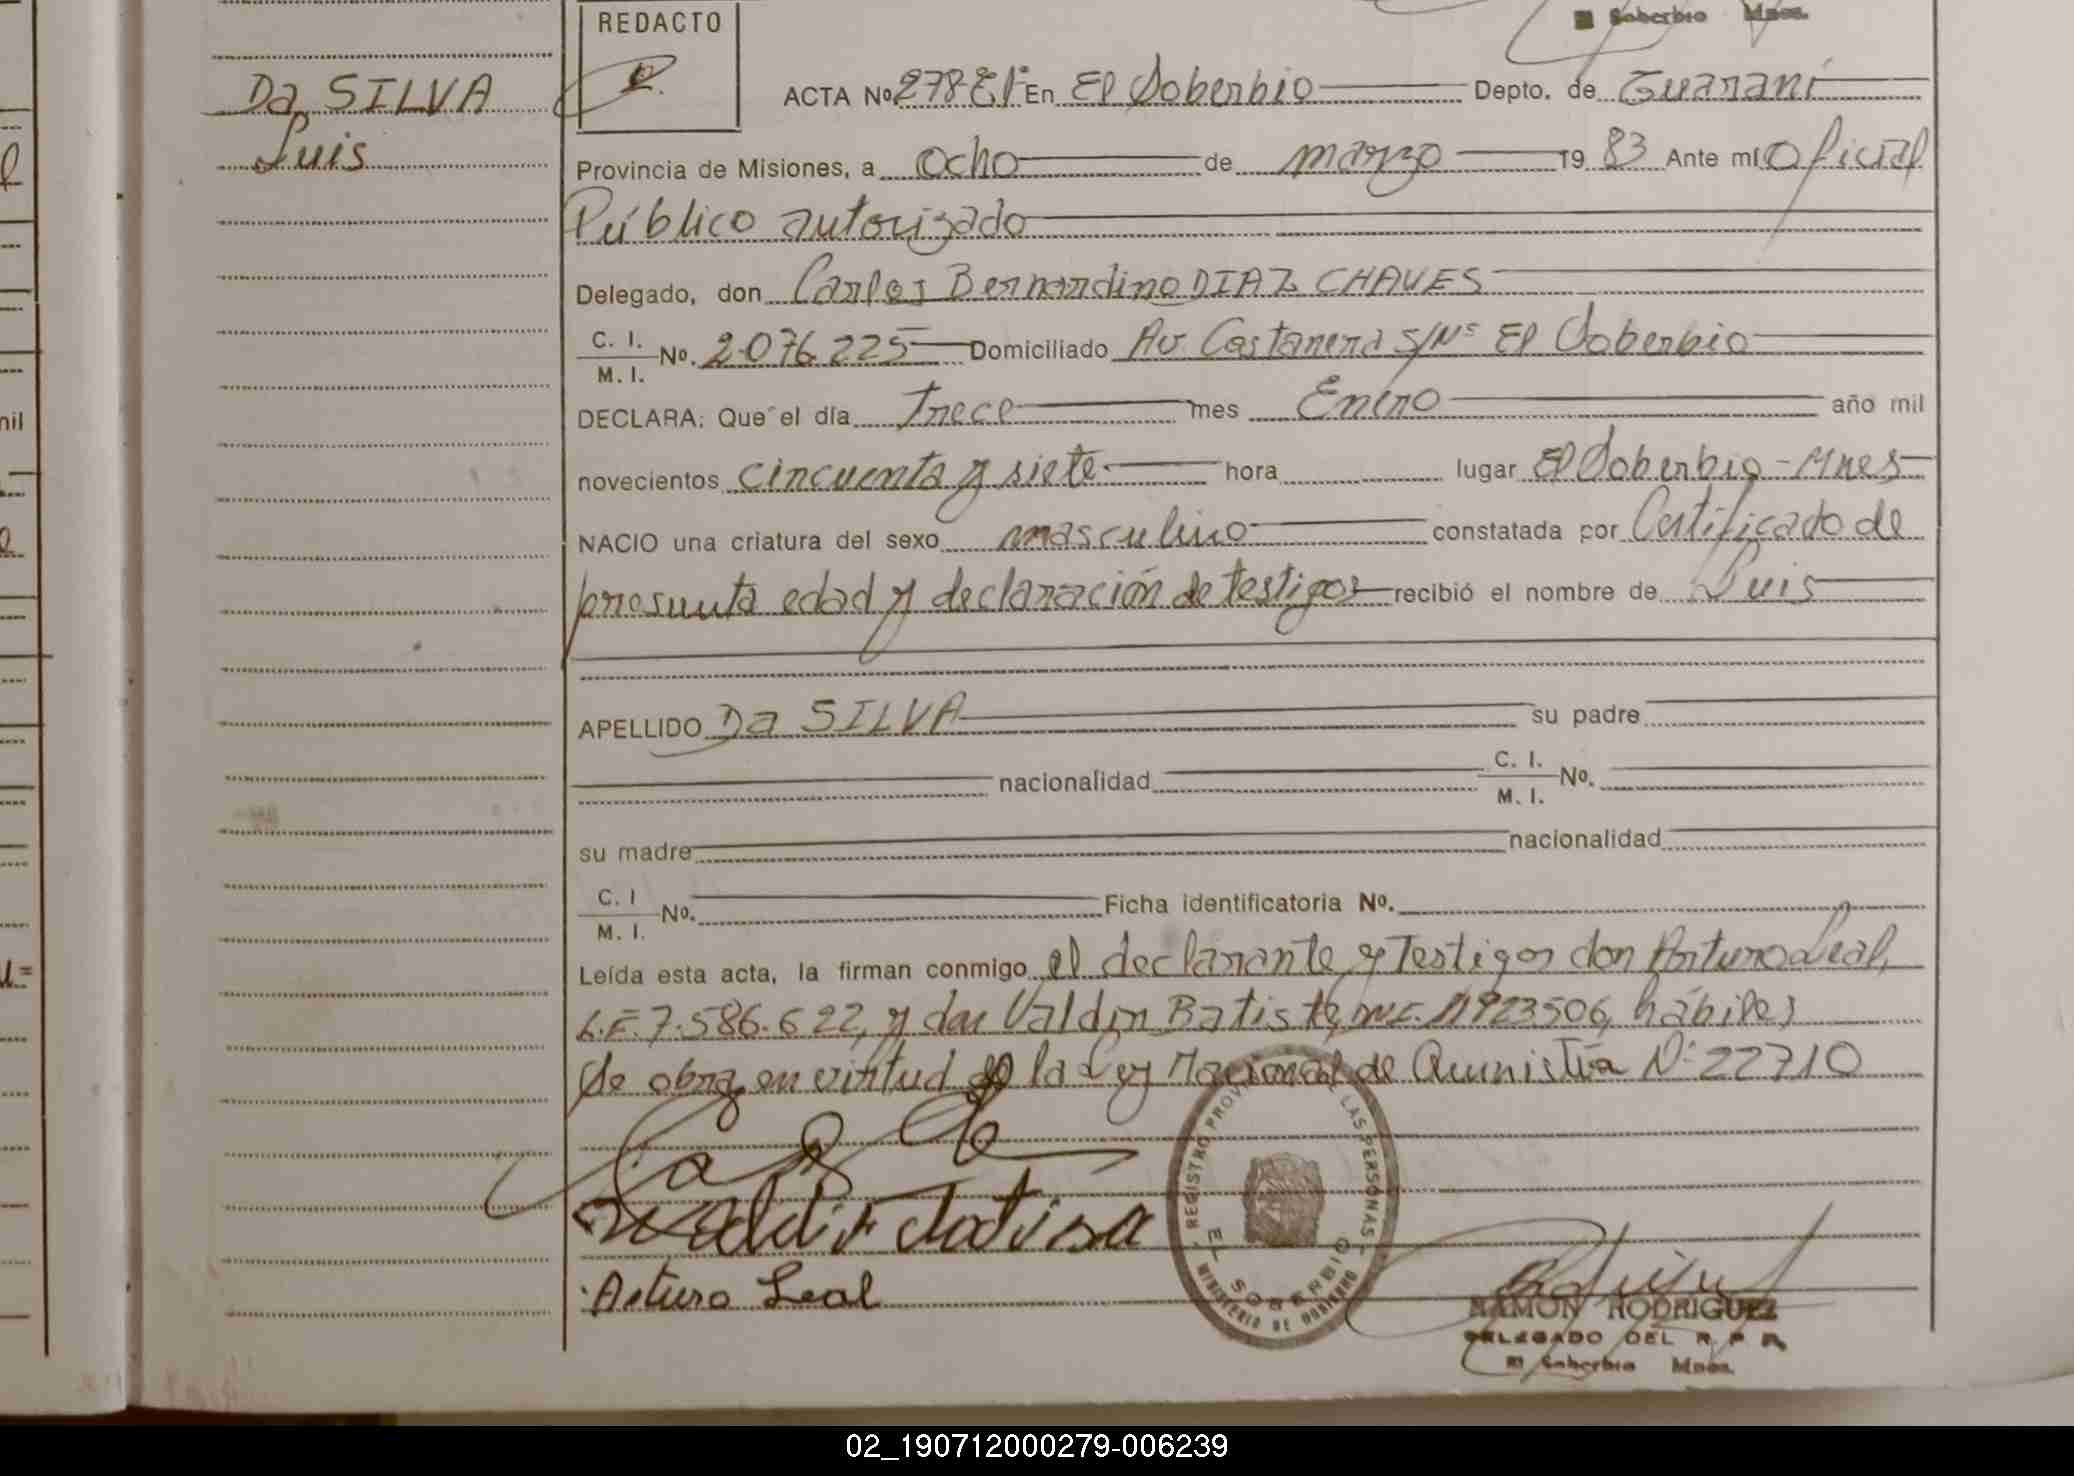 Soberbio Mnes.
REDACTO
Da SILVA
Luis
ACTA Nº 278 En El Soberbio Depto. de Guaraní
Provincia de Misiones, a ocho de marzo 19 83 Ante mí Oficial
Público autorizado
Delegado, don Carlos Bernardino DIAZ CHAVES
C. I.
M. I. Nº. 2.076.225 Domiciliado Av. Costanera S/Nº El Soberbio
DECLARA: Que el día Trece mes Enero año mil
novecientos cincuenta y siete hora lugar El Soberbio - Mnes
NACIO una criatura del sexo masculino constatada por Certificado de
presunta edad y declaración de testigos recibió el nombre de Luis
APELLIDO Da SILVA su padre
nacionalidad C. I.
M. I. Nº.
su madre nacionalidad
C. I
M. I. Nº. Ficha identificatoria Nº.
Leída esta acta, la firman conmigo el declarante y Testigos don Arturo Leal,
L.E. 7.586.622, y don Valdir Batista, hábiles
de obrar en virtud de la Ley Nacional de Amnistía Nº 22710
Arturo Leal
REGISTRO PROVINCIAL DE LAS PERSONAS
EL SOBERBIO
MINISTERIO DE GOBIERNO
RAMON RODRIGUEZ
DELEGADO DEL R P P
El Soberbio Mnes.
02_190712000279-006239